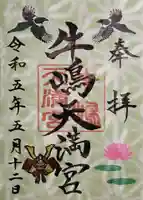 奉拝
牛嶋天満宮
令和五年五月十二日